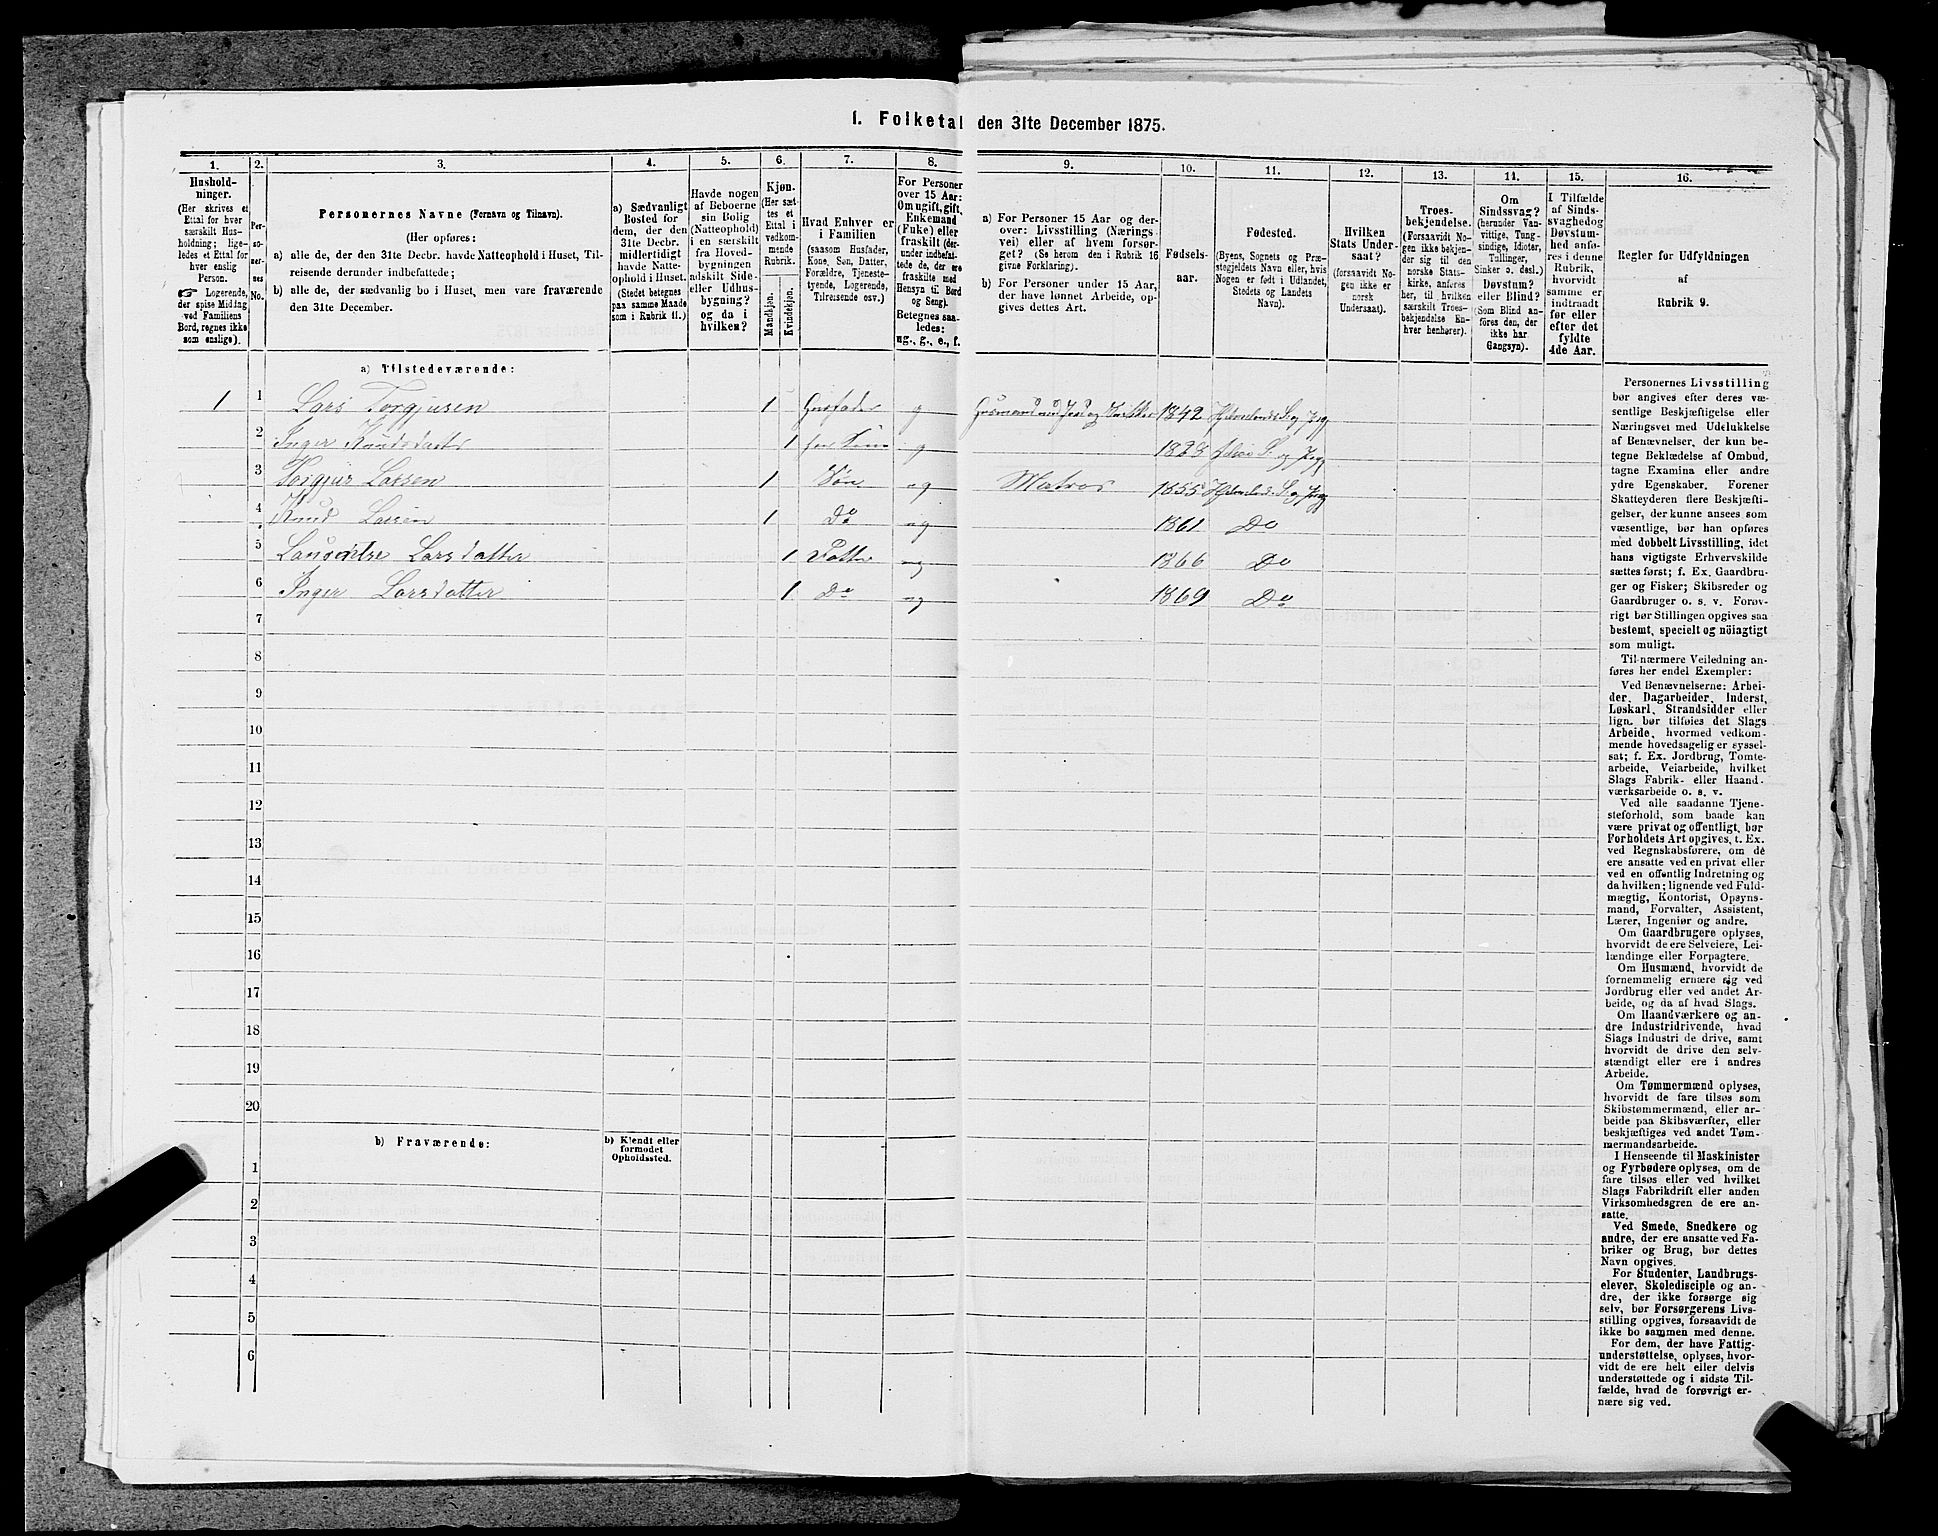 1. Folketal den 31te December 1875.
1. 2. 3. 4. 5. 6. 7. 8. 9. 10. 11. 12. 13. 14. 15. 16.
Hushold-
ninger.
(Her skrives et
Ettal for hver
særskilt Hus-
holdning; lige-
ledes et Ettal for
hver enslig
Person.
☞ Logerende,
der spise Middag
ved Familiens
Bord, regnes ikke
som enslige).
Per-
so-
ner-
nes
No.
Personernes Navne (Fornavn og Tilnavn).
(Her opføres:
a) alle de, der den 31te Decbr. havde Natteophold i Huset, Til-
reisende derunder indbefattede;
b) alle de, der sædvanlig bo i Huset, men vare fraværende
den 31te December.
a) Sædvanligt
Bosted for
dem, der den
31te Decbr.
midlertidigt
havde Natte-
ophold i Huset.
(Stedet betegnes
paa samme Maade
som i Rubrik 11.)
Havde nogen
af Beboerne
sin Bolig
(Natteophold)
i en særskilt
fra Hoved-
bygningen
adskilt Side-
eller Udhus-
bygning?
og da i
hvilken?
Kjøn.
(Her sæt-
tes et
Ettal i
vedkom-
mende
Rubrik.
Mandkjøn.
Kvindekjøn.
Hvad Enhver er
i Familien
(saasom Husfader,
Kone, Søn, Datter,
Forældre, Tjeneste-
tyende, Logerende,
Tilreisende osv.)
For Personer
over 15 Aar:
Om ugift, gift,
Enkemand
(Enke) eller
fraskilt (der-
under indbefat-
tede de, der ere
fraskilte med
Hensyn til Bord
og Seng).
Betegnes saa-
ledes:
ug., g., e., f.
a) For Personer 15 Aar og der-
over: Livsstilling (Nærings
vei) eller af hvem forsør-
get? (Se herom den i Rubrik 16
givne Forklaring).
b) For Personer under 15 Aar,
der have lønnet Arbeide, op-
gives dettes Art.
Fødsels-
aar.
Fødested.
(Byens, Sognets og Præ-
stegjeldets Navn eller, hvis
Nogen er født i Udlandet,
Stedets og Landets
Navn).
Hvilken
Stats Under-
saat?
(forsaavidt No-
gen ikke er
norsk
Undersaat).
Troes-
bekjendelse.
(Forsaavidt No-
gen ikke bekjen-
der sig til den
norske Stats-
kirke, anføres
her, til hvilken
særskilt Troes-
bekjendelse En-
hver henhører).
Om
Sindssvag?
(herunder Van-
vittige, Tung-
sindige, Idioter,
Tullinger,
Sinker o. desl.)
Døvstum?
eller Blind?
(Som Blind an-
føres den, der
ikke har
Gangsyn).
I Tilfælde
af Sinds-
svaghed og
Døvstum-
hed anfø-
res i denne
Rubrik,
hvorvidt
samme er
indtraadt
før eller
efter det
fyldte
4de Aar.
Regler for Udfyldningen
af
Rubrik 9.
a) Tilstedeværende:
1 1 Lars Torgjusen 1 Husfader g Husmand med Jord og 1842 S. og Prg
2 Inger Knudsdatter 1 g 1823 S. og Prg
3 Torgjus Larsen 1 Søn ug Matros 1855 S. og Prg
4 Knud Larsen 1 Do ug 1861 Do
5 Larsdatter 1 Datter ug 1866 Do
6 Inger Larsdatter 1 Do ug 1869 Do
7
8
9
10
11
12
13
14
15
16
17
18
19
20
b) Fraværende:
b) Kjendt eller
formodet
Opholdssted.
1
2
3
4
5
6
Personernes Livsstilling
bør angives efter deres væ-
sentlige Beskjæftigelse eller
Næringsvei med Udelukkelse
af Benævnelser, der kun be-
tegne Beklædelse af Ombud,
tagne Examina eller andre
ydre Egenskaber. Forener
Skatteyderen flere Beskjæfti-
gelser, der kunne ansees som
væsentlige, bør han opføres
med dobbelt Livsstilling, idet
hans vigtigste Erhvervskilde
sættes først; f. Ex. Gaardbru-
ger og Fisker; Skibsreder og
Gaardbruger o. s. v. Forøv-
rigt bør Stillingen opgives saa
bestemt, specielt og nöiagtigt
som muligt.
Til nærmere Veiledning an-
føres her endel Exempler:
Ved Benævnelserne: Arbei-
der, Dagarbeider, Inderst,
Løskarl, Strandsidder eller
lign. bør tilføies det Slags
Arbeide, hvormed vedkom-
mende hovedsagelig er syssel-
sat; f. Ex. Jordbrug, Tomte-
arbeide, Veiarbeide, hvilket
Slags Fabrik- eller Haand-
værksarbeide o. s. v.
Ved alle saadanne Tjene-
steforhold, som baade kan
være privat og offentligt, bør
Forholdets Art opgives, t. Ex.
ved Regnskabsførere, om de
ere ansatte ved en privat eller
ved en offentlig Indretning og
da hvilken; lignende ved Fuld-
mægtig, Kontorist, Opsyns-
mand, Forvalter, Assistent,
Lærer, Ingeniør og andre.
Om Gaardbrugere oplyses,
hvorvidt de ere Selveiere, Lei-
lændinge eller Forpagtere.
Om Husmænd, hvorvidt de
fornemmelig ernære sig ved
Jordbrug eller ved andet Ar-
beide, og da af hvad Slags.
Om Haandværkere og an-
dre Industridrivende, hvad
Slags Industri de drive, samt
hvorvidt de drive den selv-
stændigt eller ere i andres
Arbeide.
Om Tømmermænd oplyses,
hvorvidt de fare tilsøs som
Skibstømmermænd, eller ar-
beide paa Skibsværfter, eller
beskjæftiges ved andet Tøm-
mermandsarbeide.
I Henseende til Maskinister
og Fyrbødere oplyses, om de
fare tilsøs eller ved hvilket
Slags Fabrikdrift eller anden
Virksomhedsgren de ere an-
satte.
Ved Smede, Snedkere og
andre, der ere ansatte ved Fa-
briker og Brug, bør dettes
Navn opgives.
For Studenter, Landbrugs-
elever, Skoledisciple og an-
dre, der ikke forsørge sig
selv, bør Forsørgerens Livs-
stilling opgives, forsaavidt de
ikke bo sammen med denne.
For dem, der have Fattig-
understøttelse, oplyses, hvor-
vidt de ere helt eller delvis
understøttede og i sidste Til-
fælde, hvad de forøvrigt er-
nære sig ved.